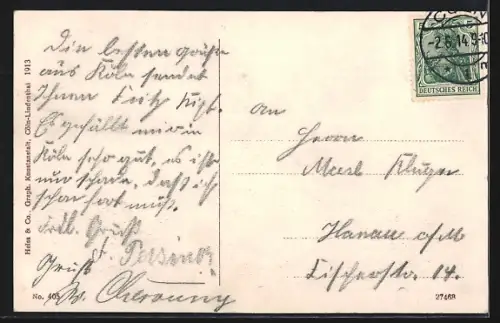 Die besten Grüße
aus Köln sendet
Ihnen Fritz
Es gefällt mir in
Köln sehr gut, es ist
nur schade, daß ich
schon fort muß.
Frdl. Gruß
Gruß
An
Herrn
Kluger
Hanau a/M
Fischerstr. 14.
CÖLN
-2.6.14.9-10
DEUTSCHES REICH
Heiss & Co., Graph. Kunstanstalt, Cöln-Lindenthal 1913
No. 405
27468